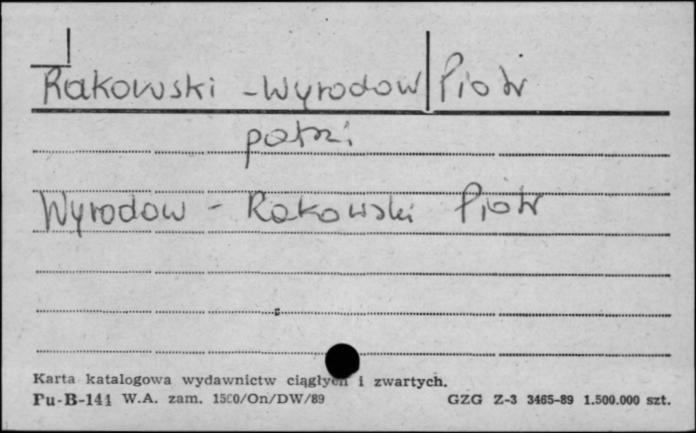 Rakowski - Wyrodow Piotr
patrz
Wyrodow - Rakowski Piotr
Karta katalogowa wydawnictw ciągłych i zwartych.
Pu-B-141 W.A. zam. 1500/On/DW/89 GZG Z-3 3465-89 1.500.000 szt.